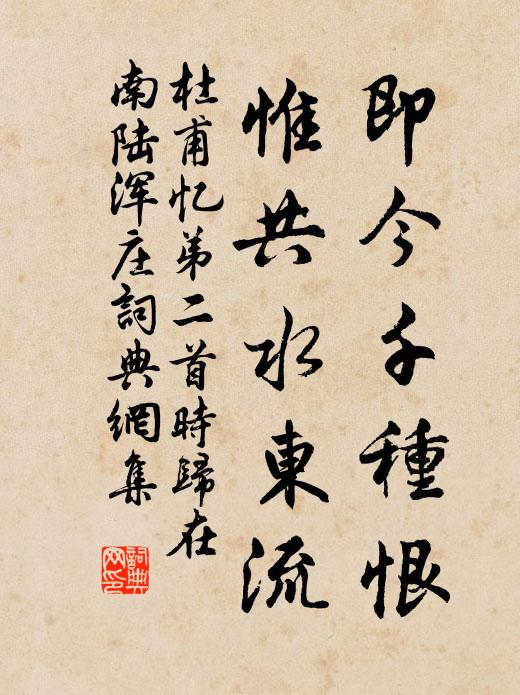 即今千種恨
惟共水東流
杜甫忆弟二首時歸在
南陆浑庄詞典網集
詞典
网印